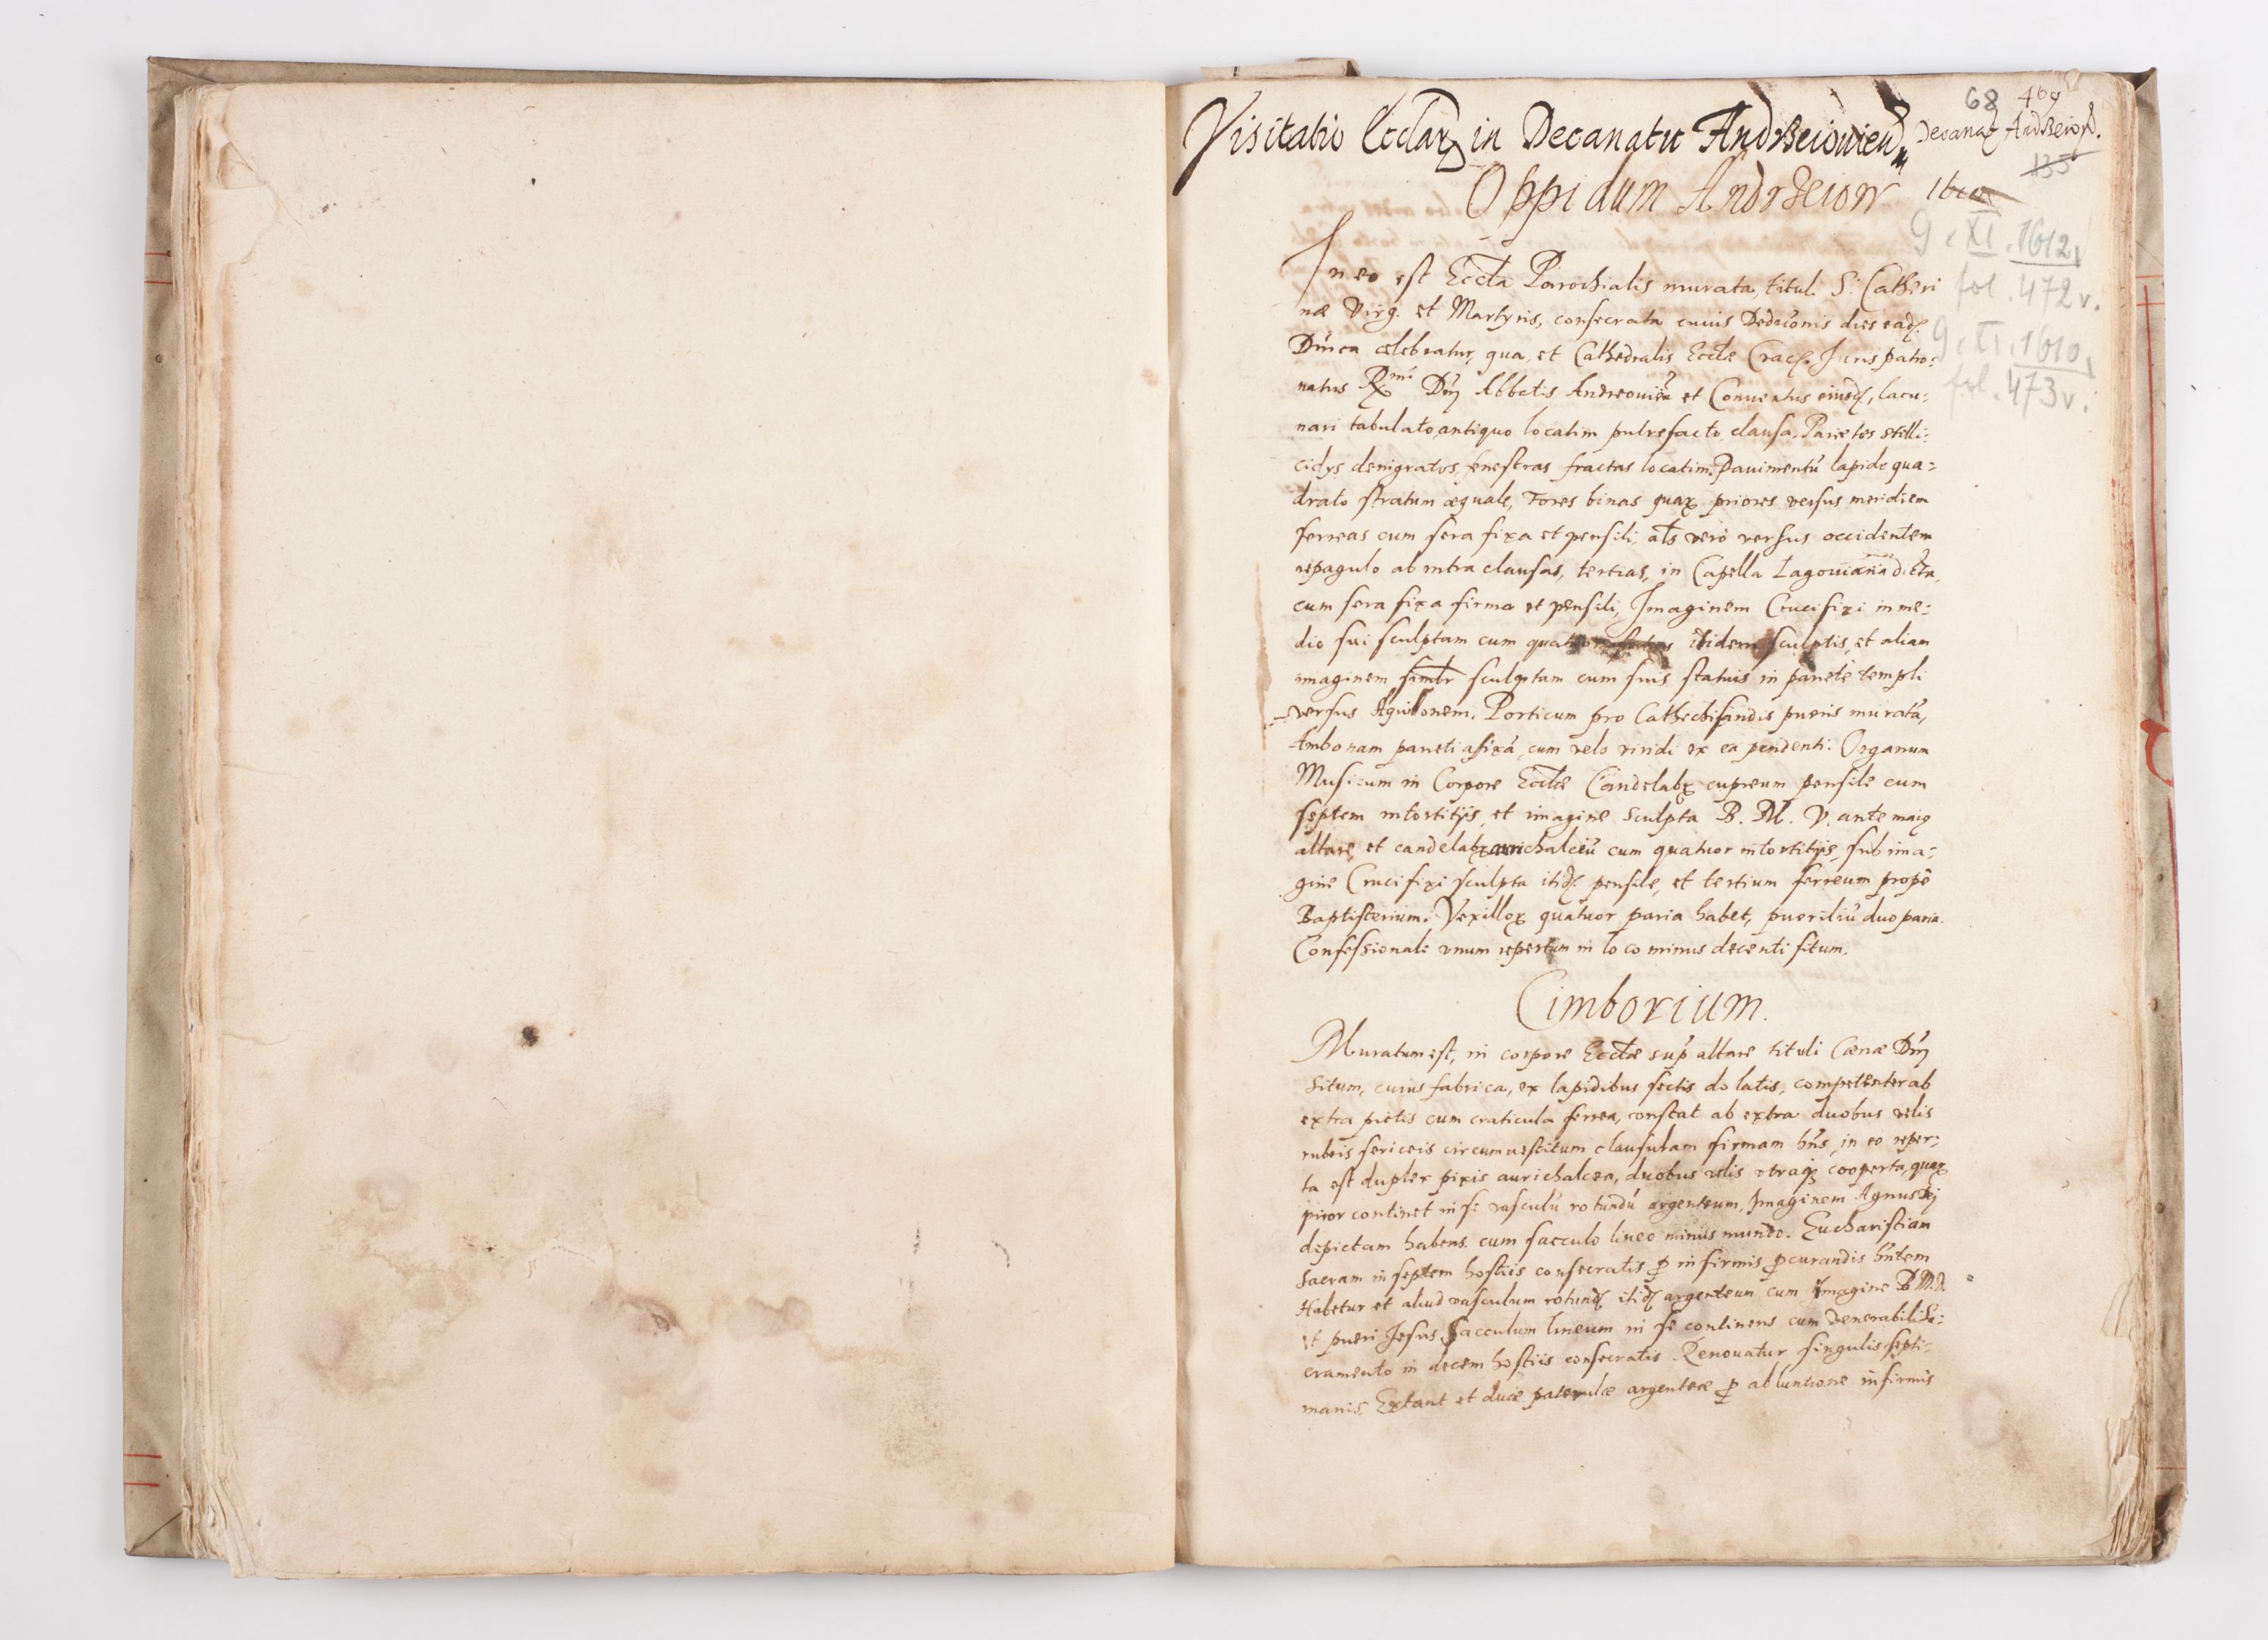 68 469
Visitatio Ecclarꝝ in Decanatu Andrzeiouien̄
Decanatꝰ Andrzeioỽ.
135
Oppidum Andrzeiow
9. XI. 1612.
fol. 472 v.
9. XI. 1610.
fol. 473 v.
In eo est Eccta Parochialis murata, tituli S. Catheri
næ Virg. et Martyris, consecrata cuius Dedicōnis dies ead.
Dn̄ica celebratur, qua et Cathedralis Ecctæ Crac. Juris patro-
natus Rmi Dn̄j Abbatis Andreouien̄ et Conuentus eiusd, lacu-
nari tabulato antiquo locatim putrefacto clausa. Parietes stilli-
cidys denigratos, fenestras fractas locatim. Pauimentū lapide qua-
drato stratum æquale, Fores binas quaꝝ priores versus meridiem
ferreas cum sera fixa et pensili, als vero versus occidentem
repagulo ab intra clausas, tertias, in Capella Lagouiana dicta,
cum sera fixa firma et pensili, Imaginem Crucifixi in me-
dio sui sculptam cum quatuor itidem sculptis, et aliam
imaginem simlr sculptam cum suis statuis in pariete templi
versus Aquilonem. Porticum pro Cathechisandis pueris muratā,
Ambonam parieti afixā, cum velo viridi ex ea pendenti. Organum
Musicum in Corpore Ecctæ Candelabꝝ cupreum pensile cum
septem intortitijs et imagine sculpta B. M. V. ante maiꝰ
altare, et candelabꝝ aurichalceū cum quatuor intortitijs, sub ima-
gine Crucifixi sculpta itid. pensile, et tertium ferreum prope
Baptisterium. Vexilloꝝ quatuor paria habet, puerilīu duo paria.
Confessionale vnum repertum in loco minus decenti situm.
Cimborium.
Muratum est, in corpore Ecctæ sup̄ altare tituli Cænæ Dn̄j
situm, cuius fabrica, ex lapidibus sectis dolatis, competenter ab
extra pictis cum craticula ferrea, constat ab extra duobus velis
rubeis sericeis circumuestitum clausuram firmam hn̄s, in eo reper-
ta est duplex pixis aurichalcea, duobus velis vtraqꝫ cooperta, quaꝝ
prior continet in se vasculū rotundū argenteum, Imaginem Agnus Dej
depictam habens cum sacculo lineo minus mundo. Eucharistiam
Sacram in septem hostiis consecratis ꝓ infirmis ꝓcurandis hn̄tem
Habetur et aliud vasculum rotund. itid. argenteum cum Imagine B M. V.
et pueri Jesus, Sacculum lineum in se continens cum Venerabili Sa-
cramento in decem hostiis consecratis. Renouatur singulis septi-
manis. Extant et duæ paterulæ argenteæ ꝓ abluntione infirmis